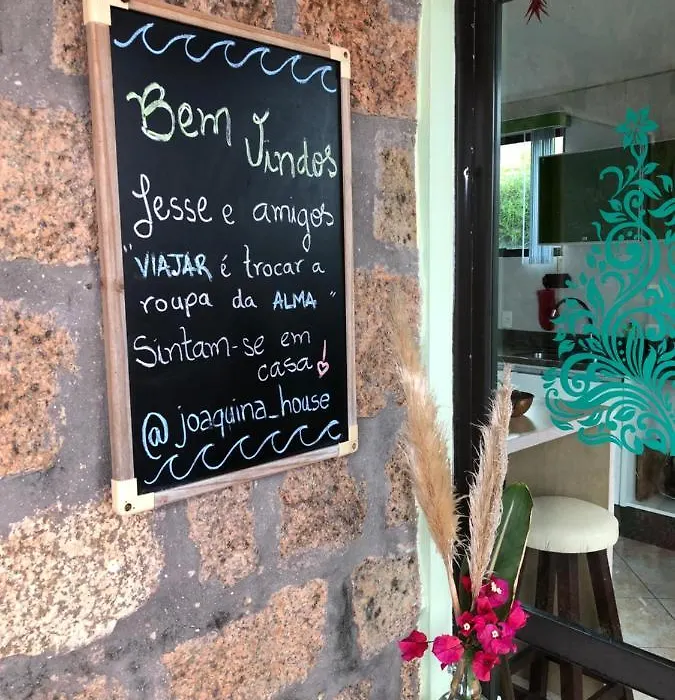 Bem
Vindos
Jesse e amigos
"VIAJAR é trocar a
roupa da ALMA"
Sintam-se em
casa!
@joaquina_house